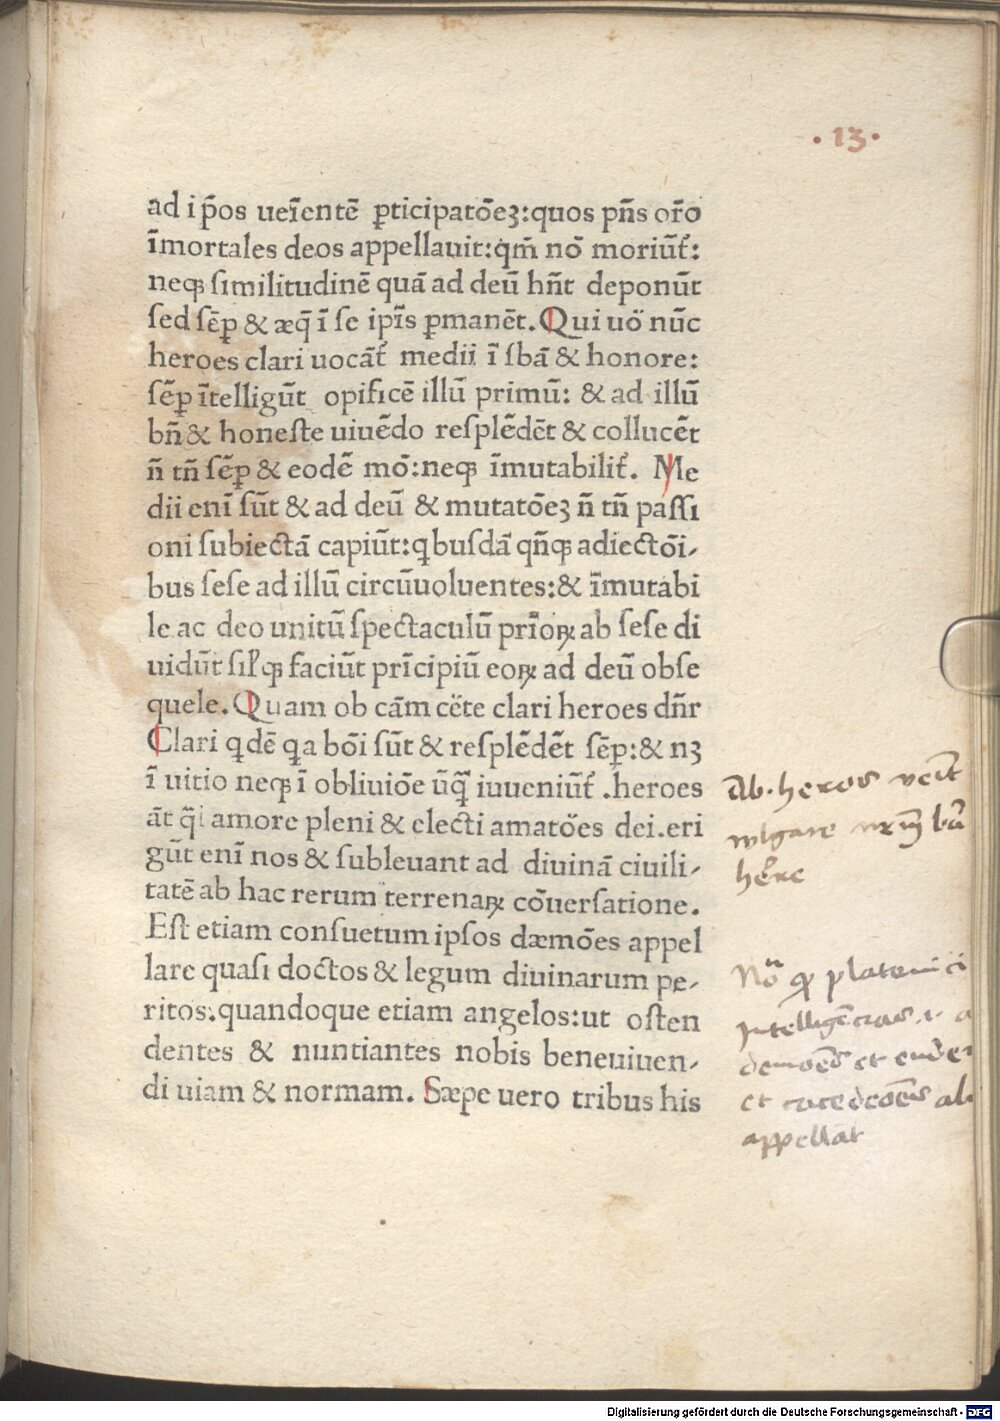 · 13 ·
ad ip̄os ueĩentẽ ꝑticipatõeȝ:quos pñs or̃o
ĩmortales deos appellauit:qm̃ nõ moriũt̃:
neqꝫ ſimilitudinẽ quã ad deũ hñt deponũt
ſed ſẽꝑ & æq̃ ĩ ſe ip̃is ꝑmanẽt. Qui uõ nũc
heroes clari uocãt̃ medii ĩ ſbã & honore:
ſẽꝑ ĩtelligũt opificẽ illũ primũ: & ad illũ
bñ & honeſte uiuẽdo reſplẽdẽt & collucẽt
ñ tñ ſẽꝑ & eodẽ mõ:neqꝫ ĩmutabilit̃. Me
dii enĩ ſũt & ad deũ & mutatõeȝ ñ tñ paſſi
oni ſubiectã capiũt:qbuſdã qñqꝫ adiectõi-
bus ſeſe ad illũ circũuoluentes:& ĩmutabi
le ac deo unitũ ſpectaculũ prĩoꝝ ab ſeſe di
uidũt ſil̃qꝫ faciũt prĩcipiũ eoꝝ ad deũ obſe
quele. Quam ob cãm cẽte clari heroes dñr
Clari qdẽ qa bõi ſũt & reſplẽdẽt ſẽꝑ:& nȝ
ĩ uitio neqꝫ ĩ obliuiõe ũq̃ iuueniũt̃ .heroes
ãt q̃i amore pleni & electi amatões dei.eri
gũt enĩ nos & ſubleuant ad diuinã ciuili-
tatẽ ab hac rerum terrenaꝝ cõuerſatione.
Eſt etiam conſuetum ipſos dæmões appel
lare quaſi doctos & legum diuinarum pe-
ritos:quandoque etiam angelos:ut oſten
dentes & nuntiantes nobis beneuiuen-
di uiam & normam. Sæpe uero tribus his
Ab. heros veĩt
wlgare nrm̃
here
platonici
Intelligẽcias
demoẽs et
et
appellat